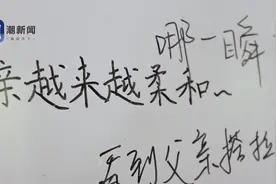 潮新闻
哪一瞬
亲越来越柔和~
看到父亲搭拉